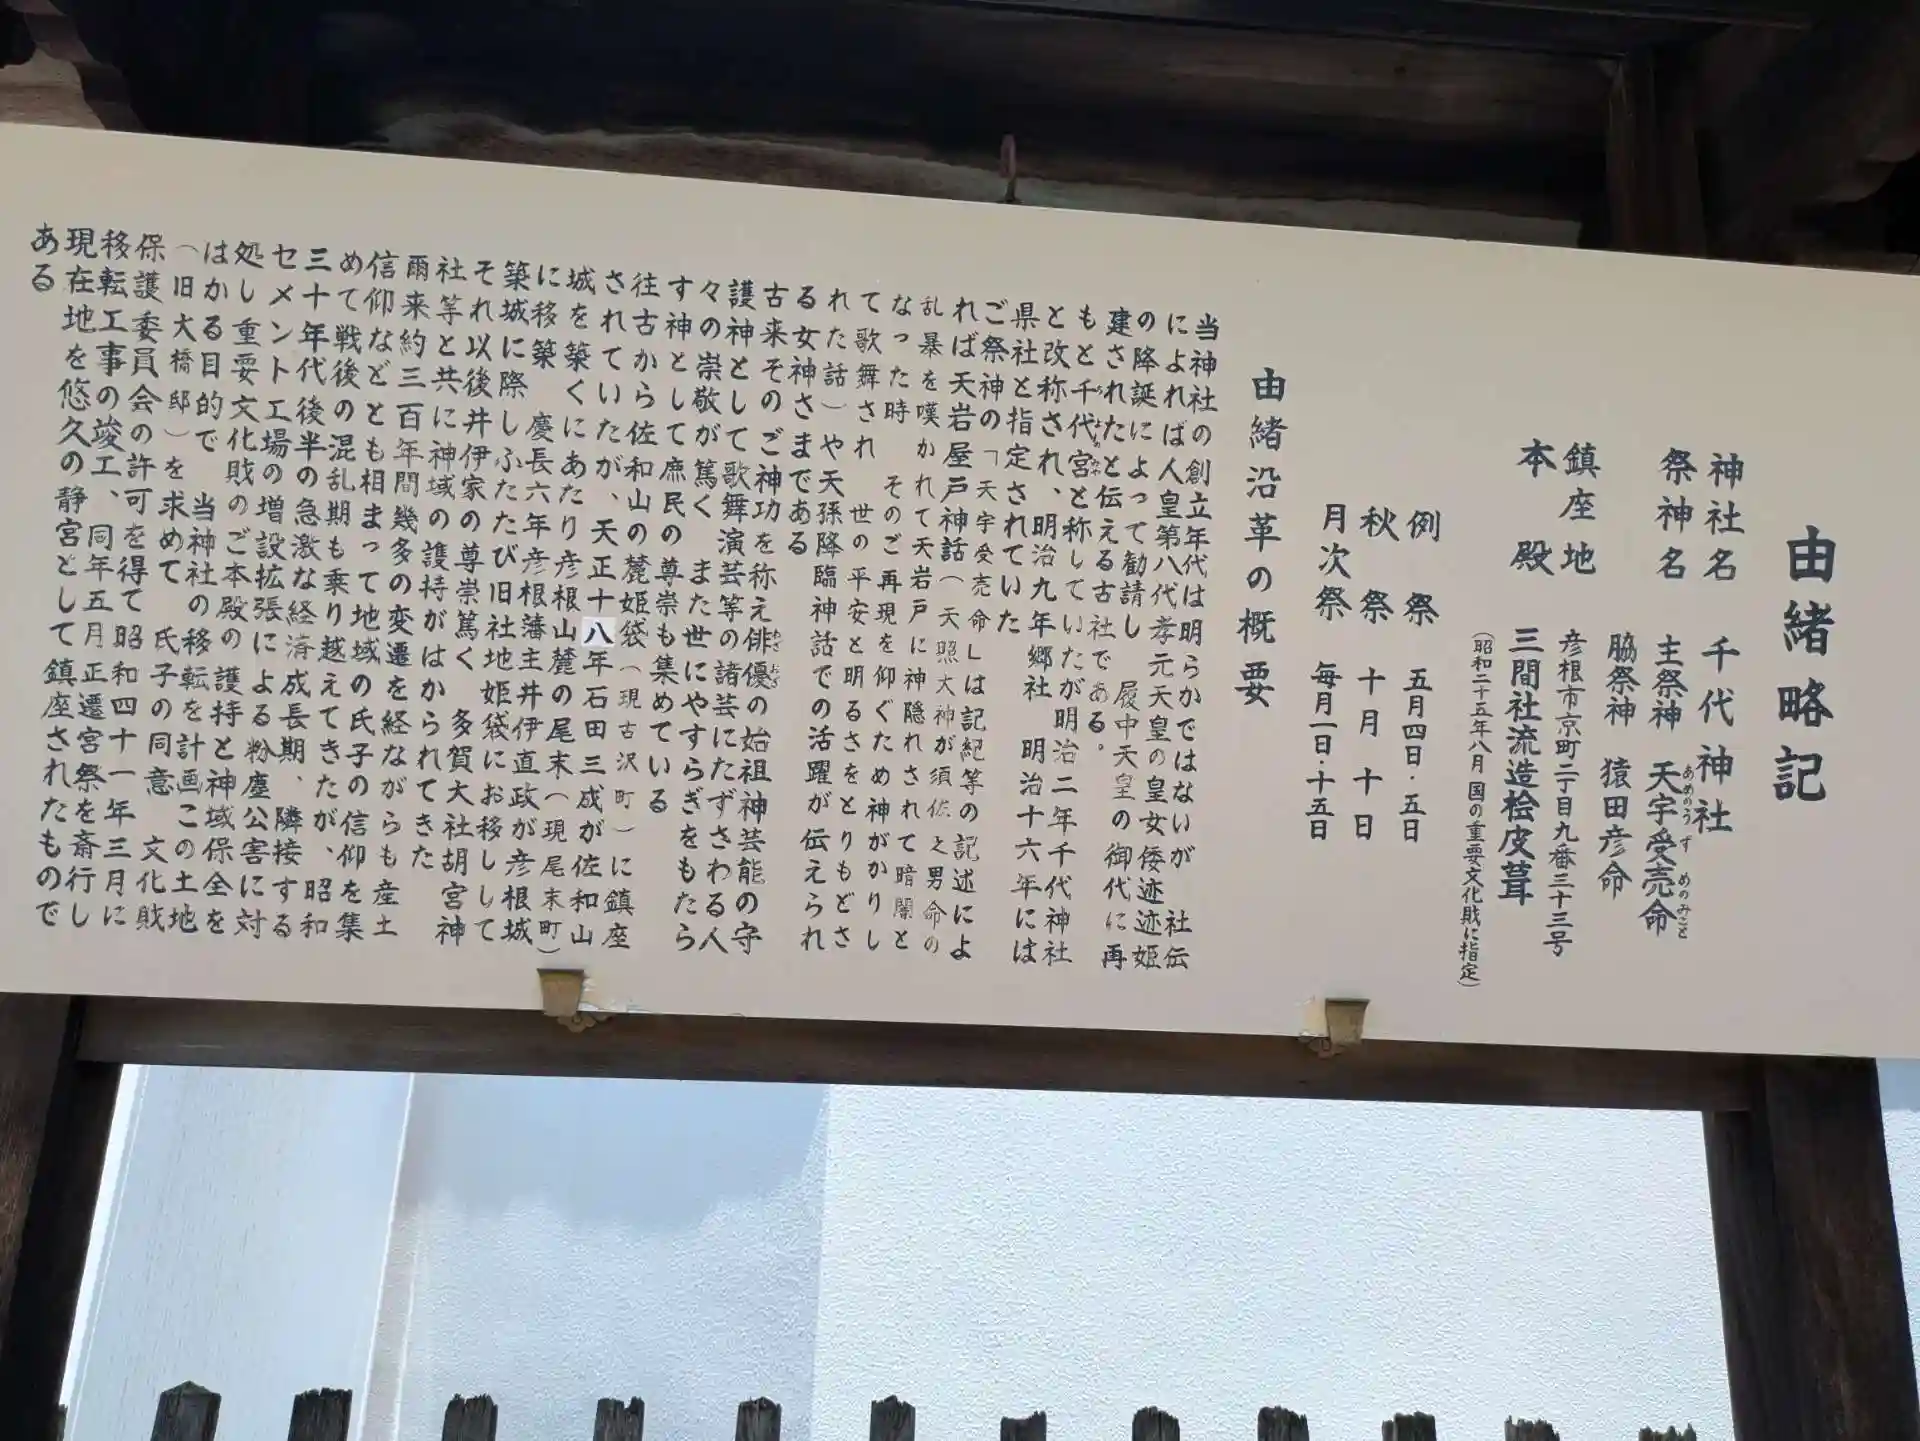 由緒略記
神社名 千代神社
祭神名 主祭神 天宇受売命
あめのうず めのみこと
脇祭神 猿田彦命
鎮座地 彦根市京町二丁目九番三十三号
本殿 三間社流造桧皮葺
(昭和二十五年八月 国の重要文化財に指定)
例祭 五月四日・五日
秋祭 十月十日
月次祭 毎月一日・十五日
由緒沿革の概要
当神社の創立年代は明らかではないが 社伝
によれば人皇第八代孝元天皇の皇女倭迹迹姫
の降誕によって勧請し 履中天皇の御代に再
建されたと伝える古社である。
もと千代宮と称していたが明治二年千代神社
と改称され、明治九年郷社 明治十六年には
県社と指定されていた
ご祭神の「天宇受売命」は記紀等の記述によ
れば天岩屋戸神話(天照大神が須佐之男命の
乱暴を嘆かれて天岩戸に神隠れされて暗闇と
なった時 そのご再現を仰ぐため神がかりし
て歌舞され 世の平安と明るさをとりもどさ
れた話)や天孫降臨神話での活躍が伝えられ
る女神さまである
古来そのご神功を称え俳優の始祖神芸能の守
護神として歌舞演芸等の諸芸にたずさわる人
々の崇敬が篤く また世にやすらぎをもたら
す神として庶民の尊崇も集めている
往古から佐和山の麓姫袋(現古沢町)に鎮座
されていたが、天正十八年石田三成が佐和山
城を築くにあたり彦根山麓の尾末(現尾末町)
に移築 慶長六年彦根藩主井伊直政が彦根城
築城に際しふたたび旧社地姫袋にお移しして
それ以後井伊家の尊崇篤く 多賀大社胡宮神
社等と共に神域の護持がはかられてきた
爾来約三百年間幾多の変遷を経ながらも産土
信仰などとも相まって地域の氏子の信仰を集
めて戦後の混乱期も乗り越えてきたが、昭和
三十年代後半の急激な経済成長期、隣接する
セメント工場の増設拡張による粉塵公害に対
処し重要文化財のご本殿の護持と神域保全を
はかる目的で 当神社の移転を計画この土地
(旧大橋邸)を求めて 氏子の同意 文化財
保護委員会の許可を得て昭和四十一年三月に
移転工事の竣工、同年五月正遷宮祭を斎行し
現在地を悠久の静宮として鎮座されたもので
ある